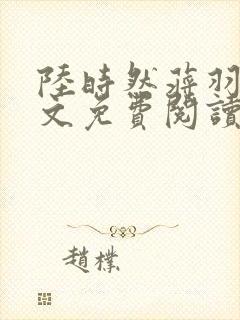 陸時然蒋羽
文免費閱讀
趙樸